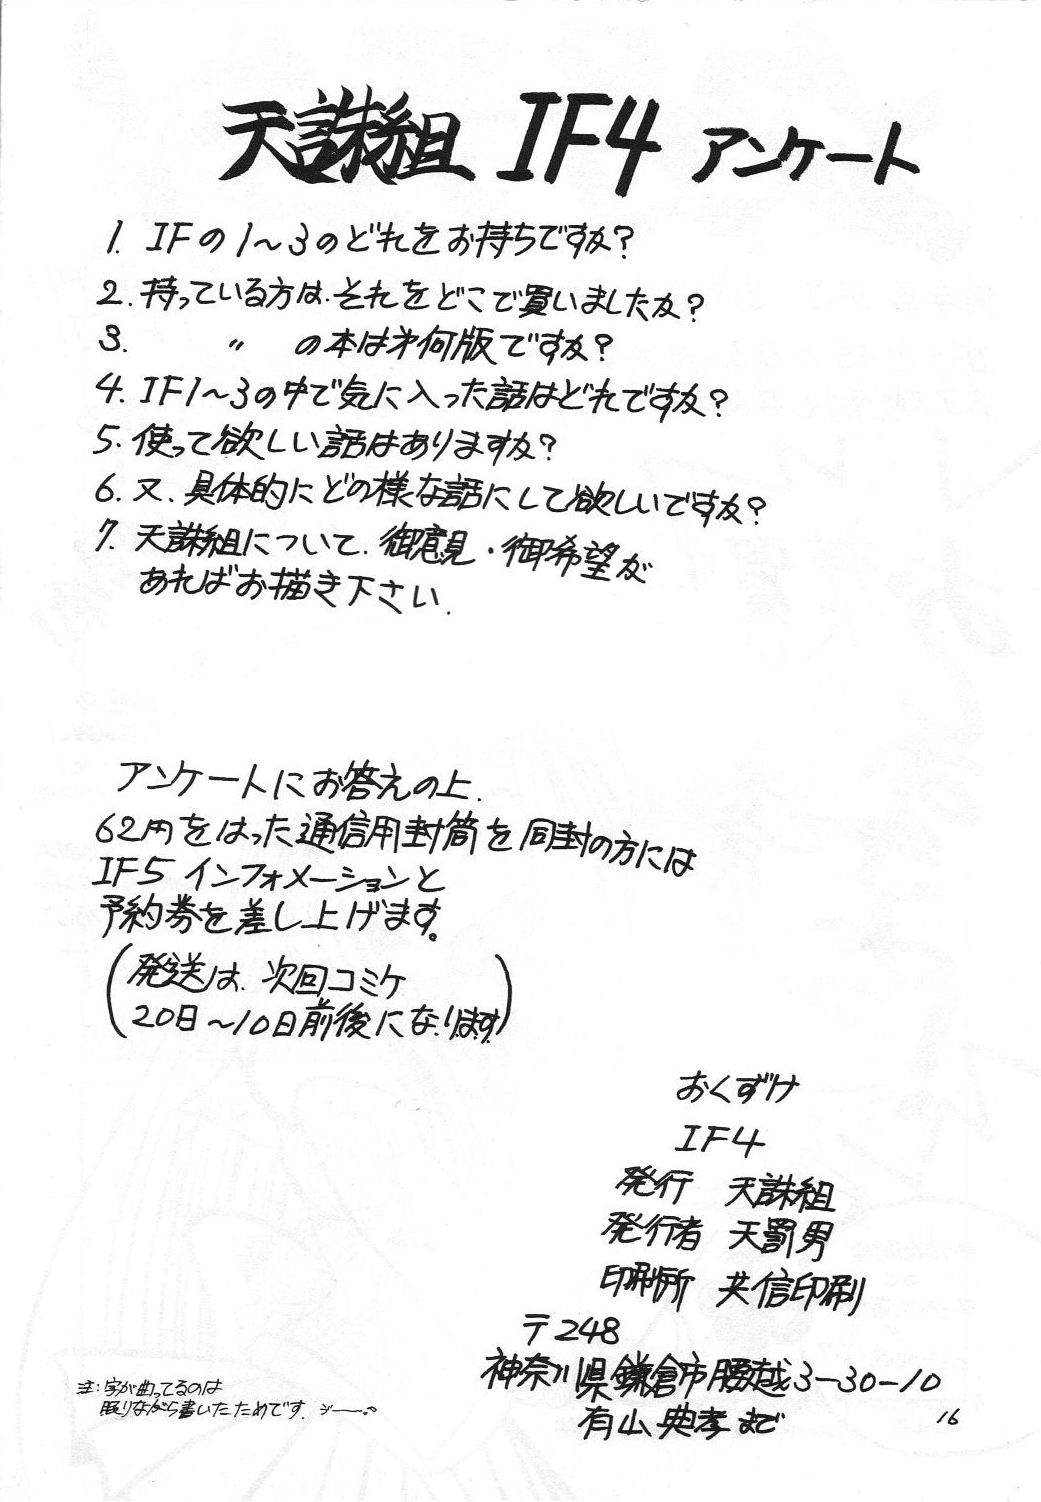 天誅組 IF4 アンケート
1. IFの1〜3のどれをお持ちですか?
2. 持っている方は、それをどこで買いましたか?
3. 〃 の本は才何版ですか?
4. IF1〜3の中で気に入った話はどれですか?
5. 使って欲しい話はありますか?
6. 又、具体的にどの様な話にして欲しいですか?
7. 天誅組について、御意見・御希望が
あればお描き下さい.
アンケートにお答えの上、
62円をはった通信用封筒を同封の方には
IF5 インフォメーションと
予約券を差し上げます。
(発送は、次回コミケ
20日〜10日前後になります)
おくずけ
IF4
発行 天誅組
発行者 天罰男
印刷所 共信印刷
〒248
神奈川県鎌倉市腰越3-30-10
有山典孝まで
注:字が曲ってるのは
眠りながら書いたためです。
16